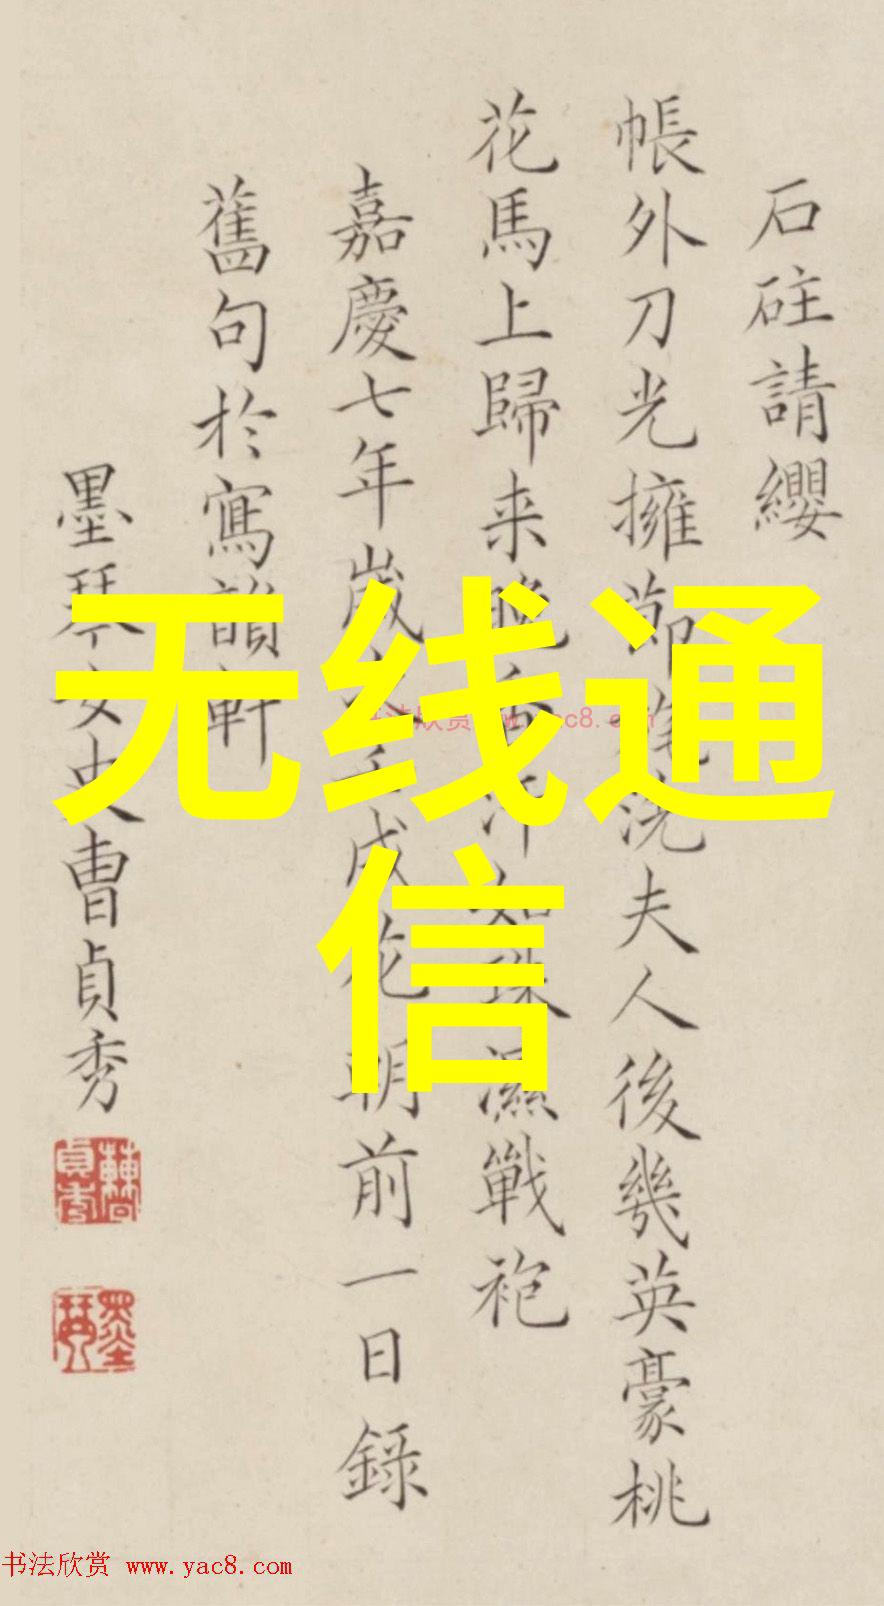 石砫請纓
帳外刀光擁節旄洗夫人後幾英豪桃
花馬上歸来晚香汗如珠濕戰袍
嘉慶七年歲次壬戌花朝前一日錄
舊句於寫韻軒
墨琴女史曹貞秀
无线通
信
书法欣赏 www.yac8.com